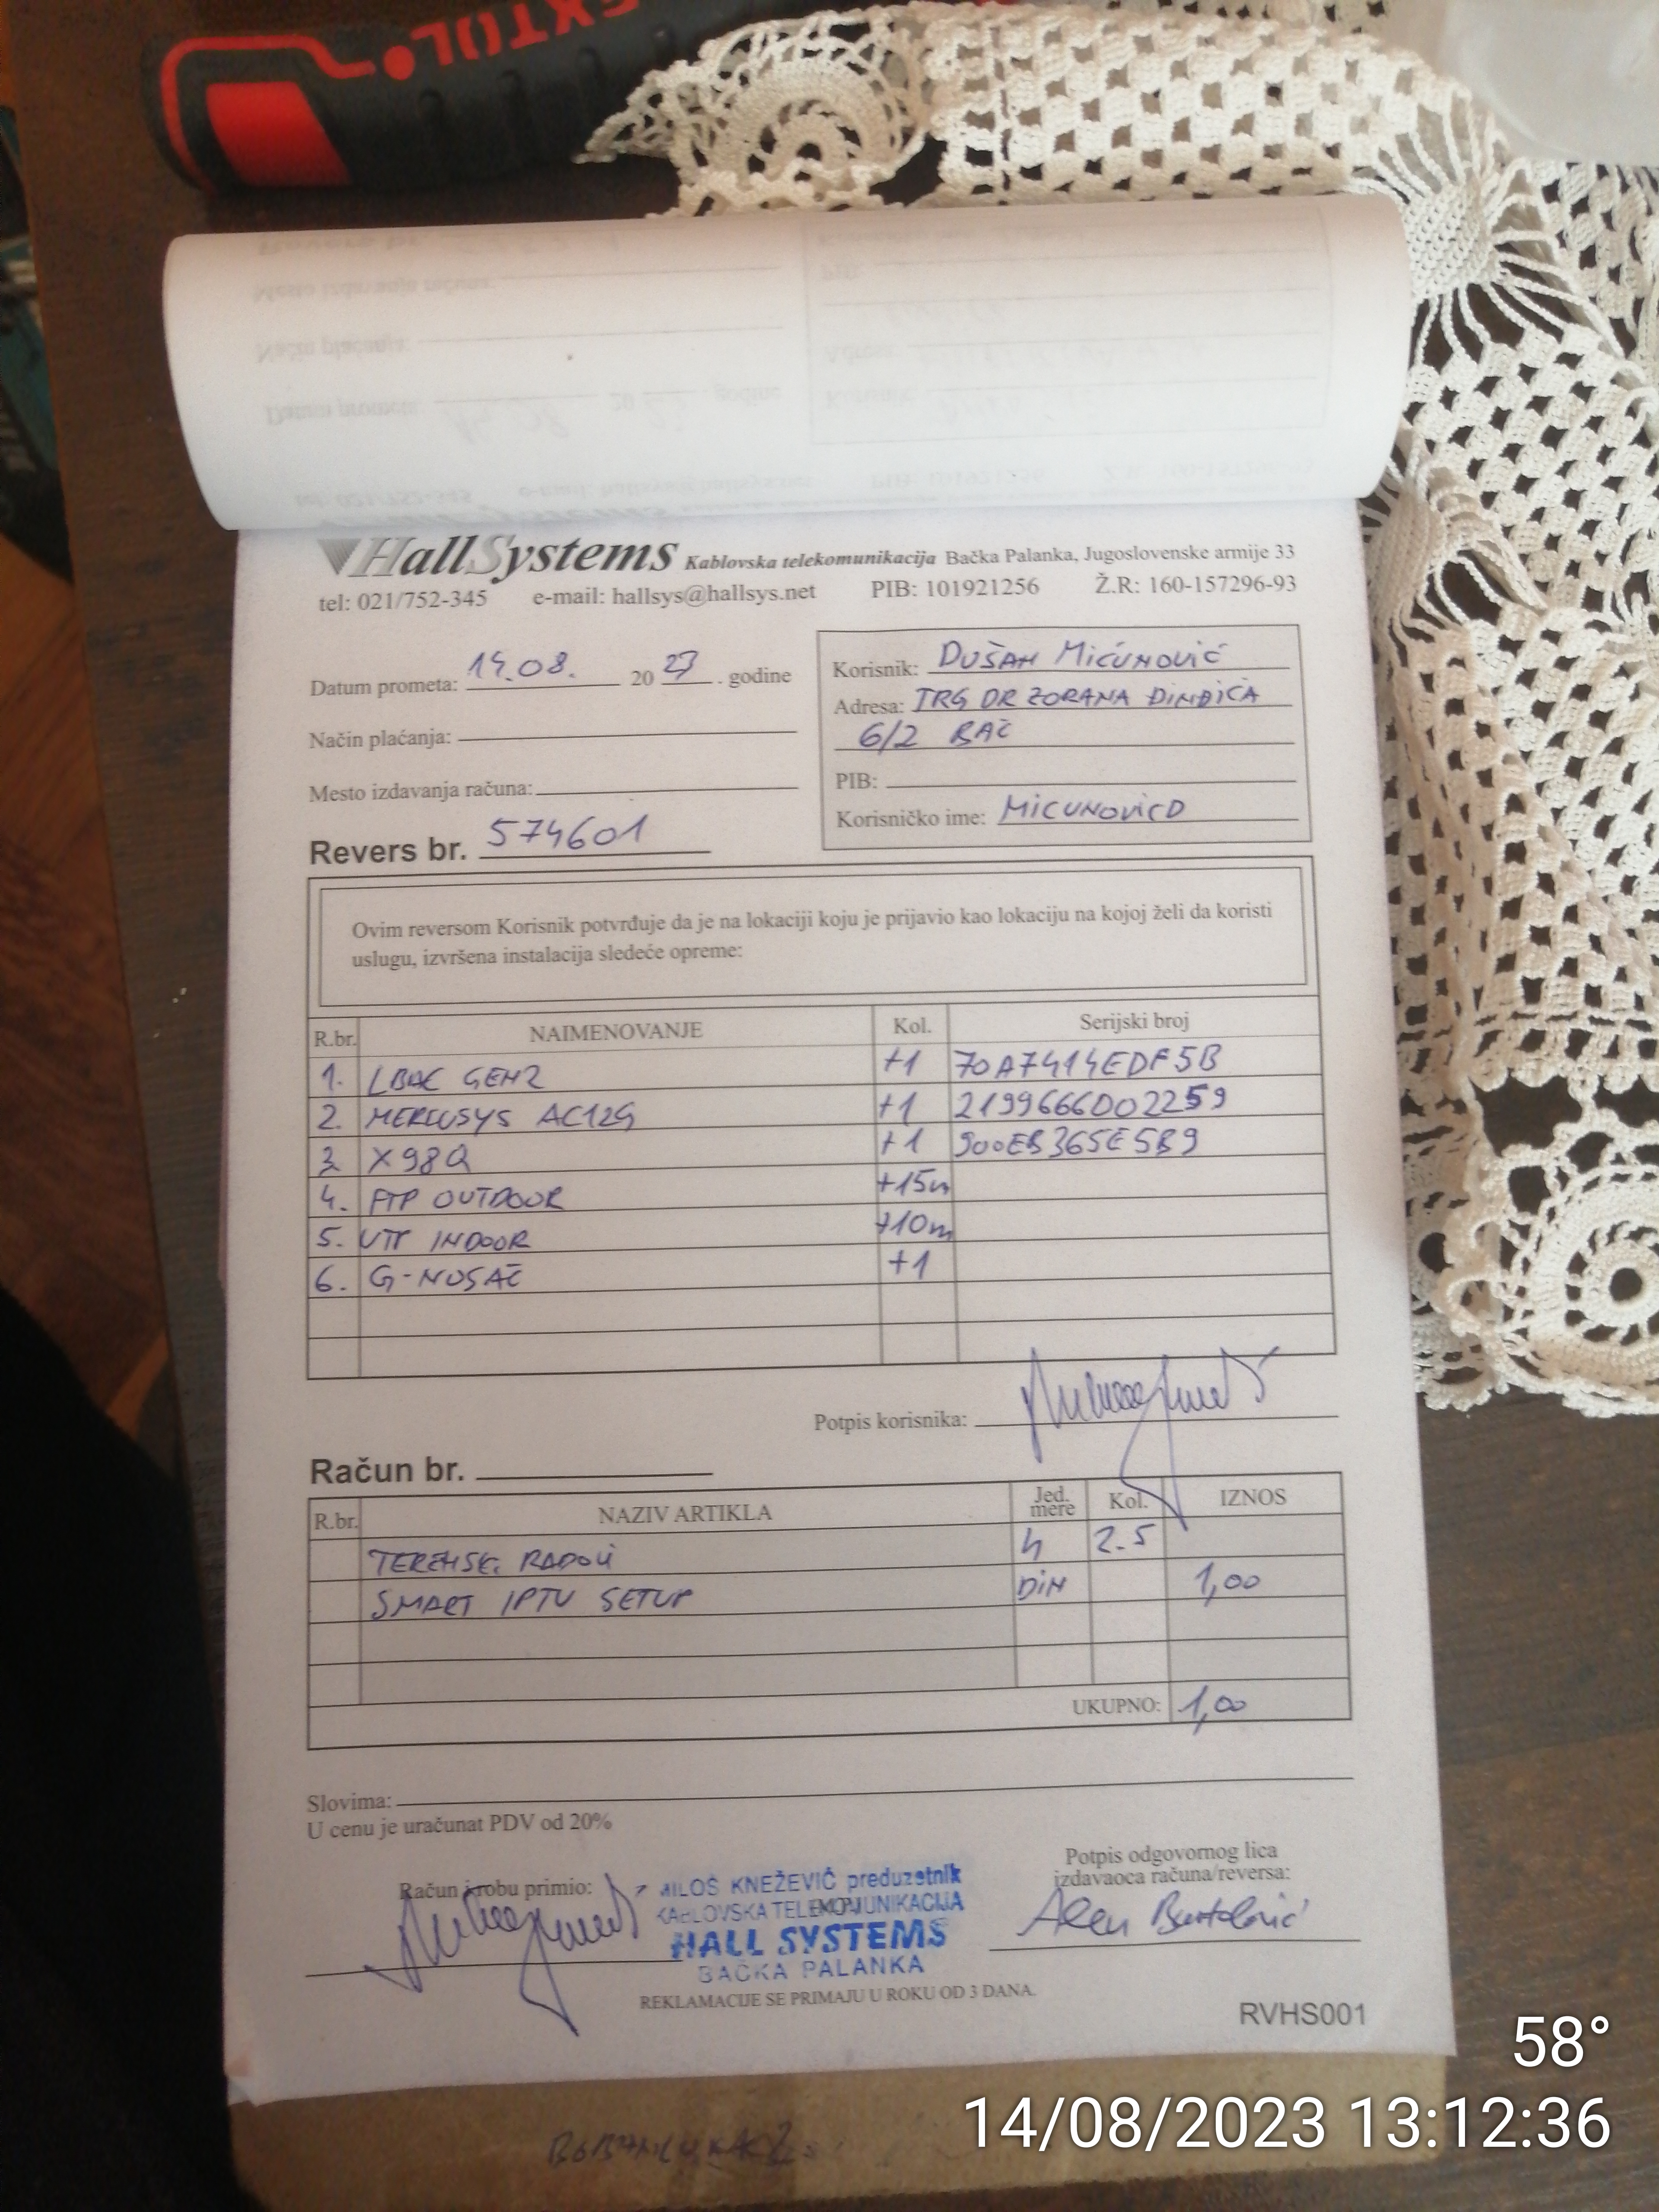 EXTOL
HallSystems Kablovska telekomunikacija Bačka Palanka, Jugoslovenske armije 33
tel: 021/752-345 e-mail: hallsys@hallsys.net PIB: 101921256 Ž.R: 160-157296-93
Datum prometa: 14.08. 20 23. godine
Način plaćanja:
Mesto izdavanja računa:
Revers br. 574601
Korisnik: DUŠAN MIĆUNOVIĆ
Adresa: TRG DR ZORANA ĐINĐIĆA
6/2 BAČ
PIB:
Korisničko ime: MICUNOVICD
Ovim reversom Korisnik potvrđuje da je na lokaciji koju je prijavio kao lokaciju na kojoj želi da koristi
uslugu, izvršena instalacija sledeće opreme:
R.br. NAIMENOVANJE Kol. Serijski broj
1. LBAC GEN2 +1 70A7414EDF5B
2. MERCUSYS AC12G +1 2199666002259
3. X98Q +1 900EB365E5B9
4. FTP OUTDOOR +15m
5. UTP INDOOR +10m
6. G-NOSAČ +1
Potpis korisnika:
Račun br.
R.br. NAZIV ARTIKLA Jed. mere Kol. IZNOS
TERENSKI RADOVI h 2.5
SMART IPTV SETUP DIN 1,00
UKUPNO: 1,00
Slovima:
U cenu je uračunat PDV od 20%
Račun i robu primio:
MILOŠ KNEŽEVIĆ preduzetnik
KABLOVSKA TELEKOMUNIKACIJA
HALL SYSTEMS
BAČKA PALANKA
Potpis odgovornog lica
izdavaoca računa/reversa:
Alen Bartolović
REKLAMACIJE SE PRIMAJU U ROKU OD 3 DANA.
RVHS001
58°
14/08/2023 13:12:36